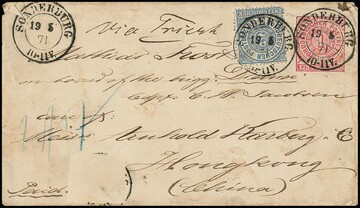 SONDERBURG
19 5
71
10-11V.
SONDERBURG
19 5
10-11V.
SONDERBURG
19 5
71
10-11V.
via Triest
Mathias
on board of the brigg
Capt. C. M. Jacobsen
care of
Arnhold Karberg &
Hongkong
(China)
Paid